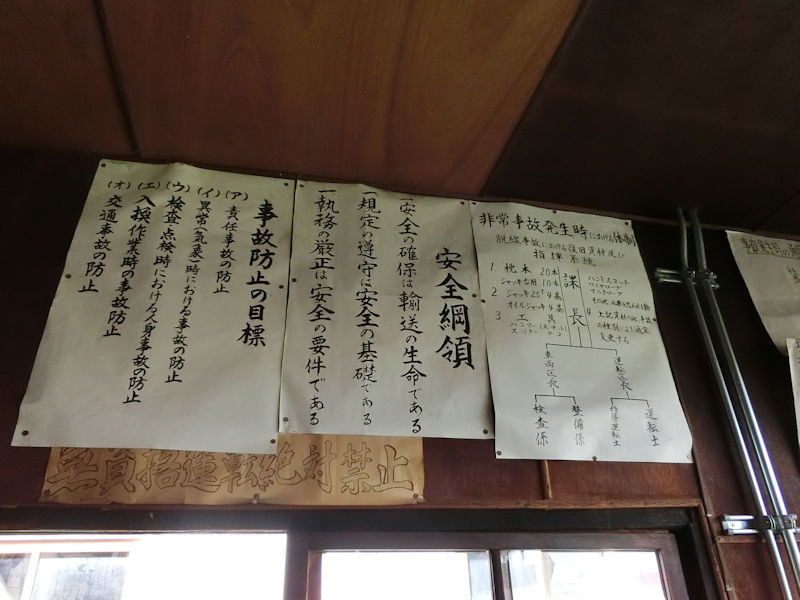 事故防止の目標
(ア) 責任事故の防止
(イ) 異常(気象)時における事故の防止
(ウ) 検査・点検時における人身事故の防止
(エ) 入換作業時の事故防止
(オ) 交通事故の防止
安全綱領
一 安全の確保は輸送の生命である
一 規定の遵守は安全の基礎である
一 執務の厳正は安全の要件である
非常事故発生時における体制
脱線事故における復旧資材及び
指揮系統
1 枕木 20本
ジャッキ台用 10本
2. ジャッキ25t 4基
オイルジャキ 4基
3 工具
スパナー テコ
ハンドスコッチ
ワイヤロープ
マニラロープ
4. 上記資材の他事故
の種別により適宜
変更する
課長
車両区長
運転区長
検査係
整備係
指導運転士
運転士
無資格運転絶対禁止